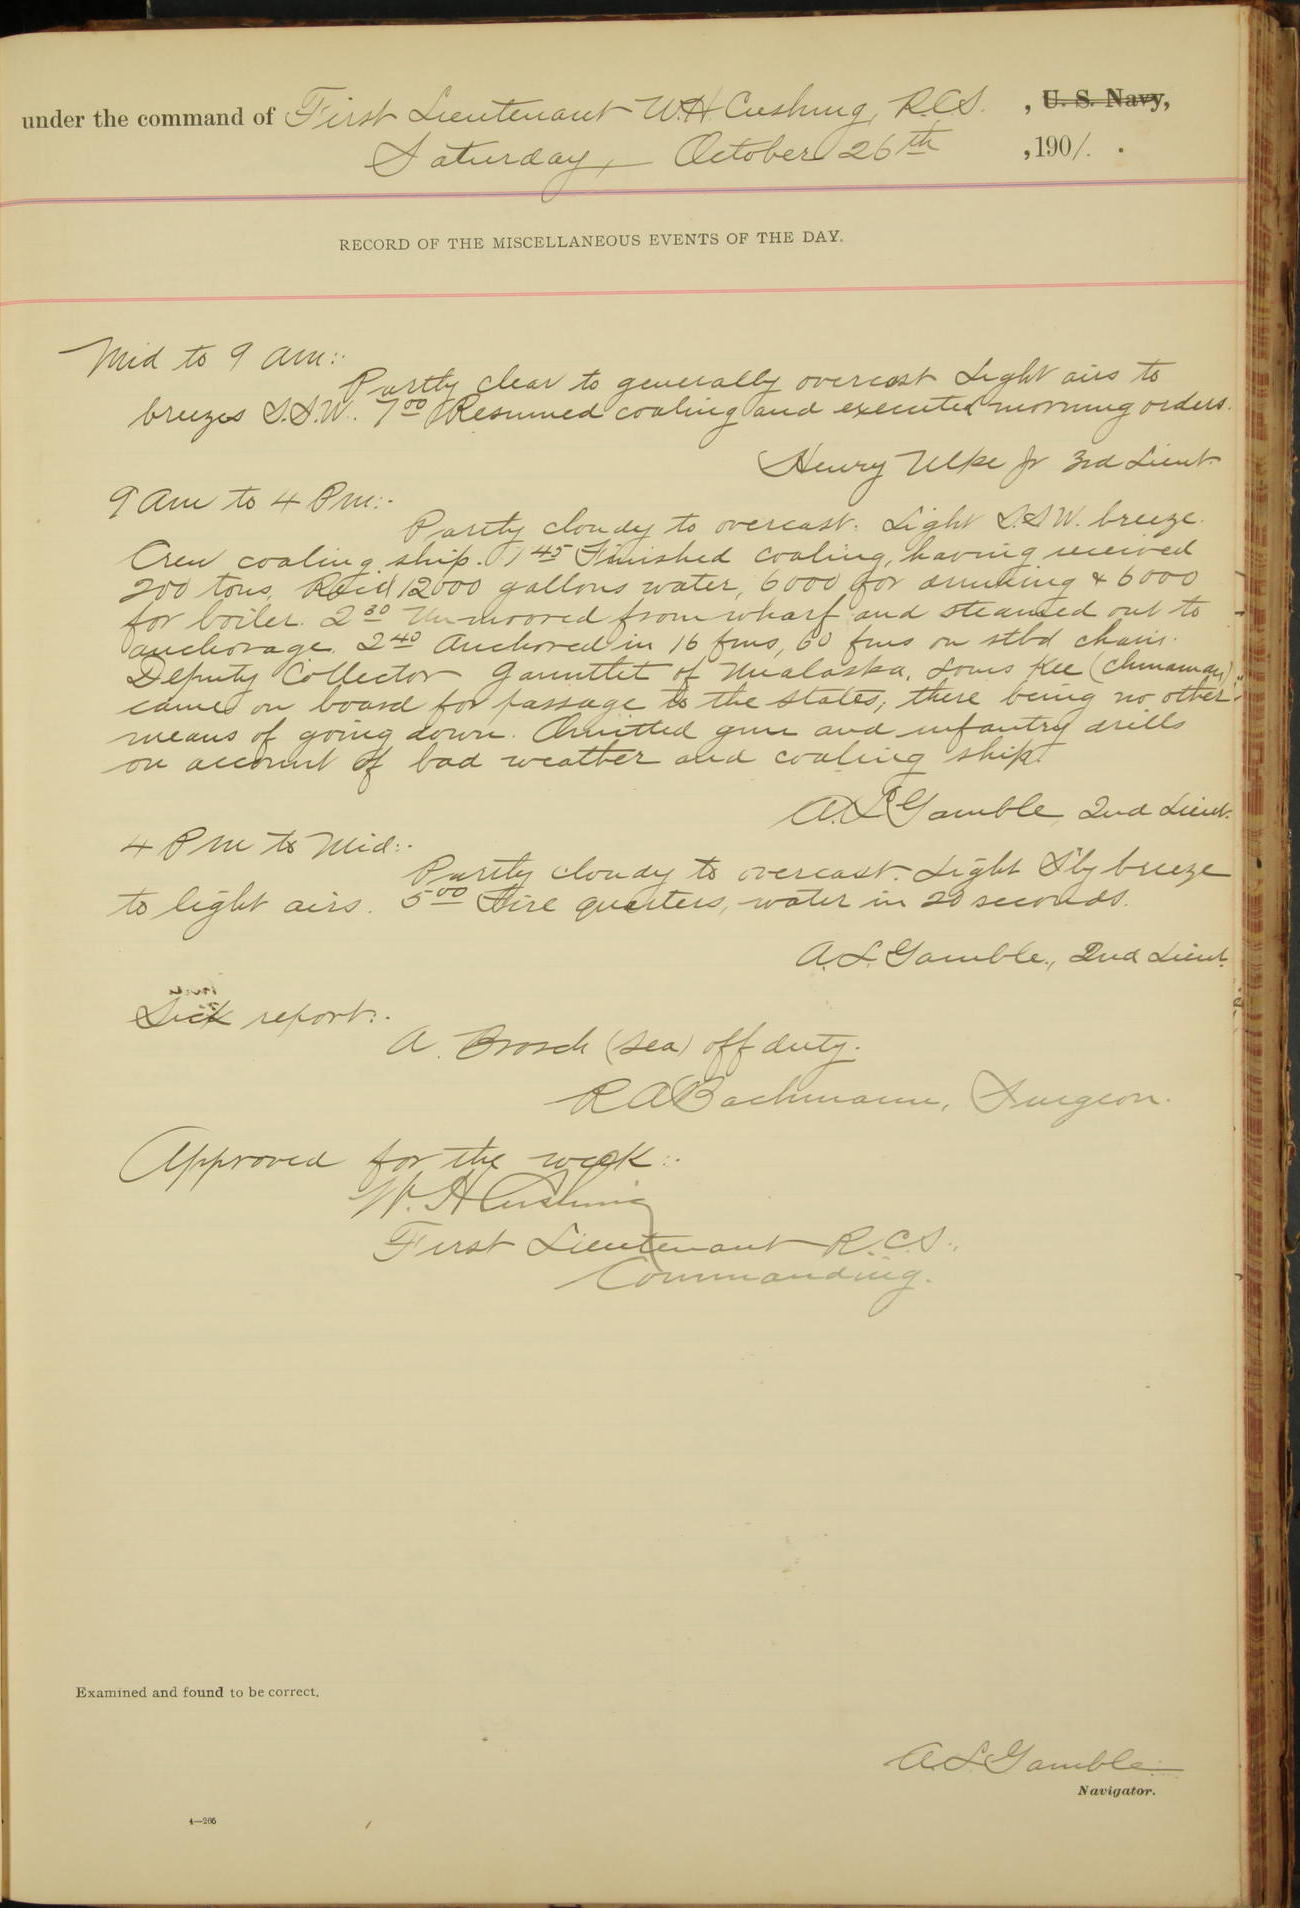 under the command of First Lieutenant W.H. Cushing, R.C.S. , U. S. Navy,
Saturday, October 26th , 1901.
RECORD OF THE MISCELLANEOUS EVENTS OF THE DAY.
Mid to 9 am:-
Partly clear to generally overcast Light airs to
breezes S.S.W. 7 00 Resumed coaling and executed morning orders.
Henry Ulke Jr 3rd Lieut.
9 am to 4 Pm:-
Partly cloudy to overcast. Light S.S.W. breeze.
Crew coaling ship. 1 45 Finished coaling, having received
200 tons, Rec'd 12000 gallons water, 6000 for drinking & 6000
for boiler. 2 30 Unmoored from wharf and steamed out to
anchorage. 2 40 Anchored in 16 fms, 60 fms on stbd chain.
Deputy Collector Gauntlet of Unalaska, Louis Kee (chinaman)
came on board for passage to the states, there being no other
means of going down. Omitted gun and infantry drills
on account of bad weather and coaling ship.
A.L. Gamble, 2nd Lieut.
4 Pm to Mid:-
Partly cloudy to overcast. Light S'ly breeze
to light airs. 5 00 Fire quarters, water in 20 seconds.
A.L. Gamble, 2nd Lieut.
Sick report:-
A. Brosch (Sea) off duty.
R A Bachmann, Surgeon.
Approved for the week:-
W. H Cushing
First Lieutenant R.C.S.,
Commanding.
Examined and found to be correct.
A.L. Gamble
Navigator.
4—205